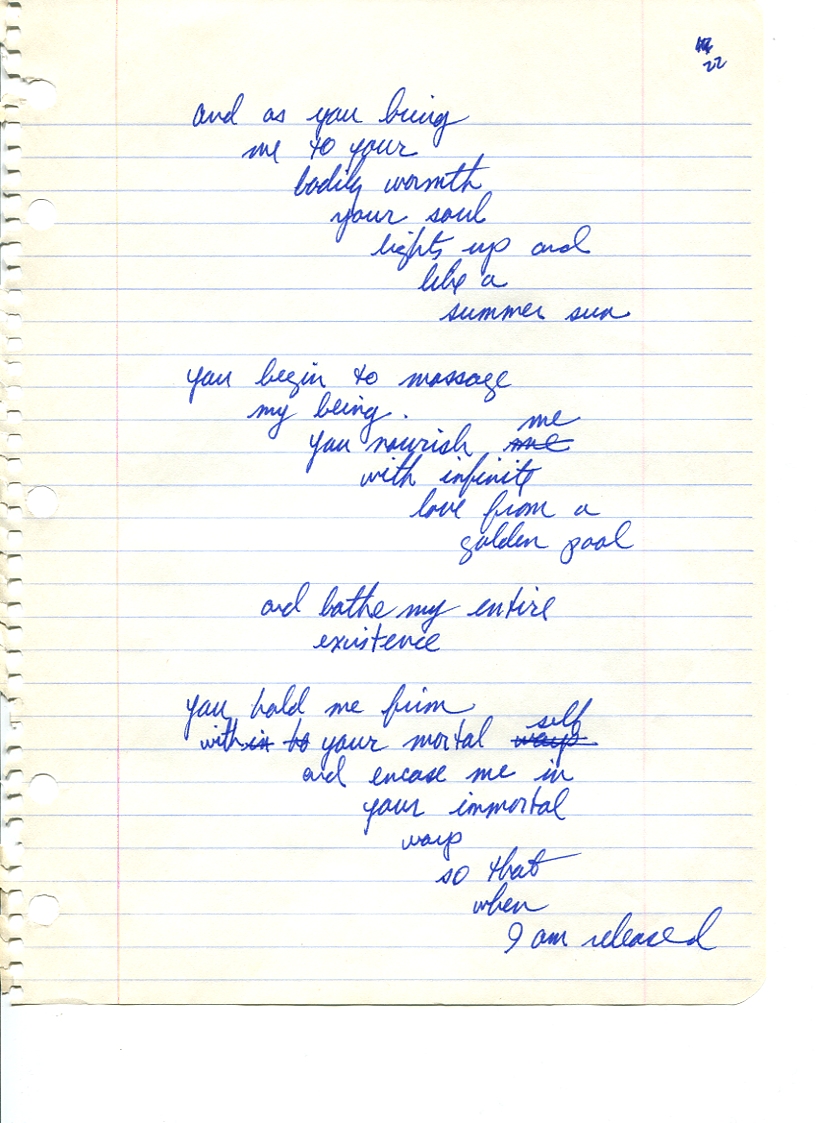 22
and as you bring
me to your
bodily warmth
your soul
lights up and
like a
summer sun
you begin to massage
my being.
me
you nourish me
with infinite
love from a
golden pool
and bathe my entire
existence
you hold me firm
self
within to your mortal warp
and encase me in
your immortal
warp
so that
when
I am released